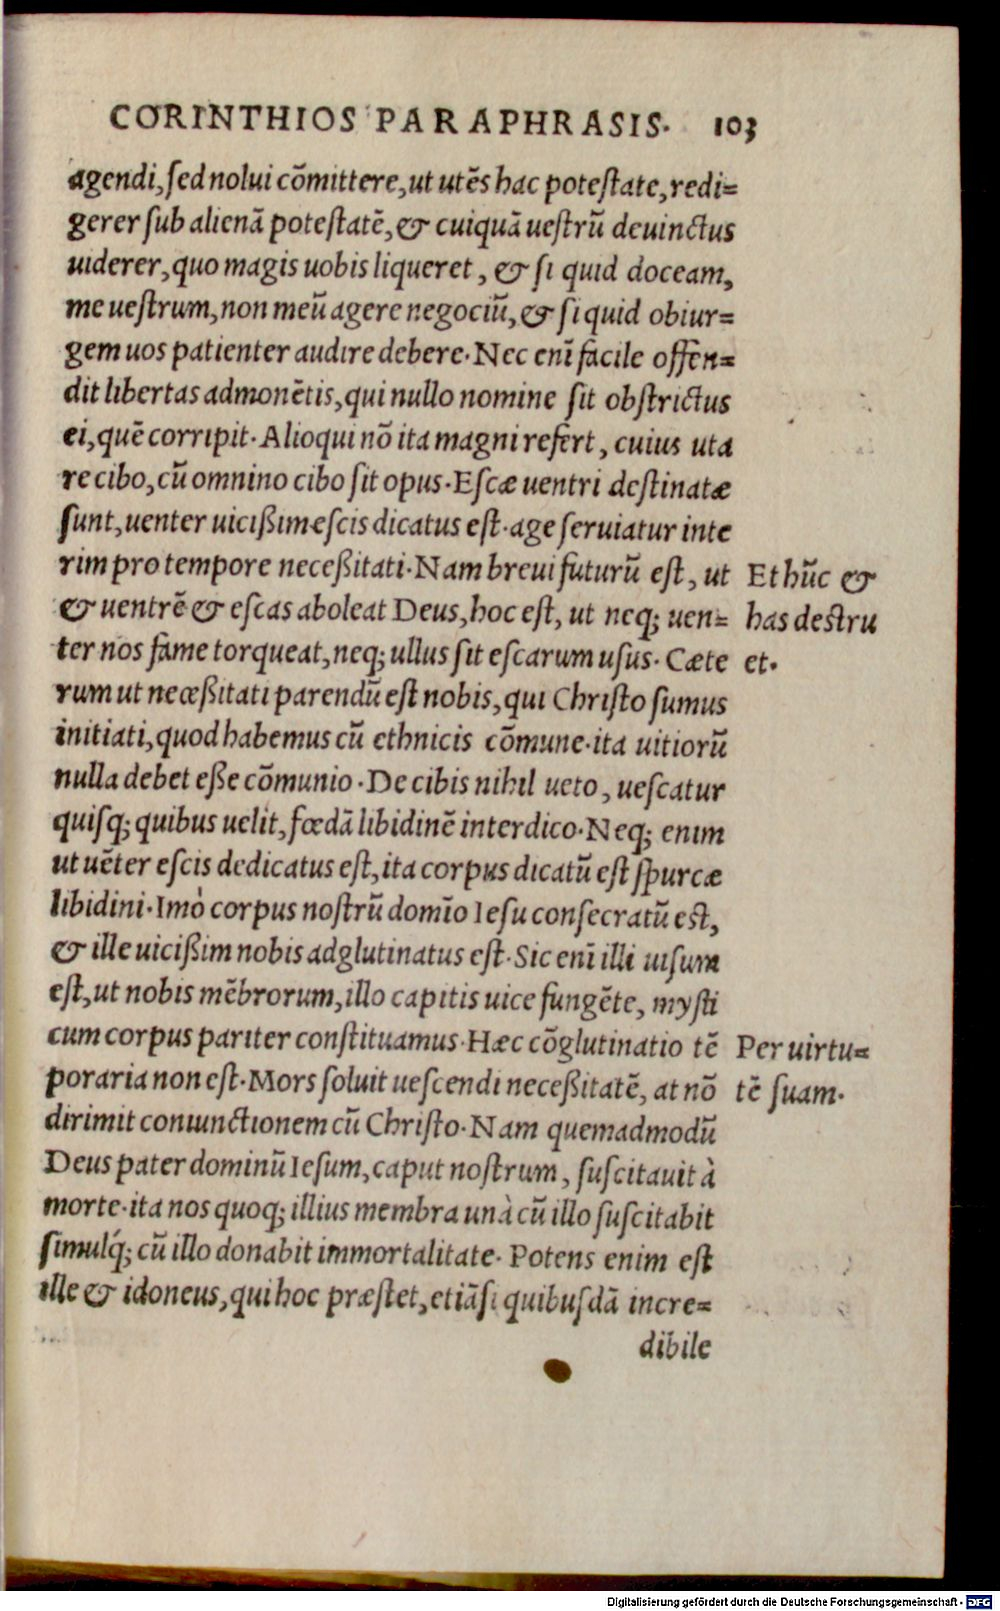 CORINTHIOS PARAPHRASIS. 103
agendi, sed nolui cōmittere, ut utēs hac potestate, redi=
gerer sub alienā potestatē, & cuiquā uestrū deuinctus
uiderer, quo magis uobis liqueret, & si quid doceam,
me uestrum, non meū agere negociū, & si quid obiur=
gem uos patienter audire debere. Nec enī facile offen=
dit libertas admonētis, qui nullo nomine sit obstrictus
ei, quē corripit. Alioqui nō ita magni refert, cuius uta
re cibo, cū omnino cibo sit opus. Escæ uentri destinatæ
sunt, uenter uicißim escis dicatus est. age seruiatur inte
rim pro tempore neceßitati. Nam breui futurū est, ut
& uentrē & escas aboleat Deus, hoc est, ut neq; uen=
ter nos fame torqueat, neq; ullus sit escarum usus. Cæte
rum ut neceßitati parendū est nobis, qui Christo sumus
initiati, quod habemus cū ethnicis cōmune. ita uitiorū
nulla debet eße cōmunio. De cibis nihil ueto, uescatur
quisq; quibus uelit, fœdā libidinē interdico. Neq; enim
ut uēter escis dedicatus est, ita corpus dicatū est spurcæ
libidini. Imò corpus nostrū domīo Iesu consecratū est,
& ille uicißim nobis adglutinatus est. Sic enī illi uisum
est, ut nobis mēbrorum, illo capitis uice fungēte, mysti
cum corpus pariter constituamus. Hæc cōglutinatio tē
poraria non est. Mors soluit uescendi neceßitatē, at nō
dirimit coniunctionem cū Christo. Nam quemadmodū
Deus pater dominū Iesum, caput nostrum, suscitauit à
morte. ita nos quoq; illius membra unà cū illo suscitabit
simulq́; cū illo donabit immortalitate. Potens enim est
ille & idoneus, qui hoc præstet, etiāsi quibusdā incre=
dibile
Et hūc &
has destru
et.
Per uirtu=
tē suam.
Digitalisierung gefördert durch die Deutsche Forschungsgemeinschaft - DFG